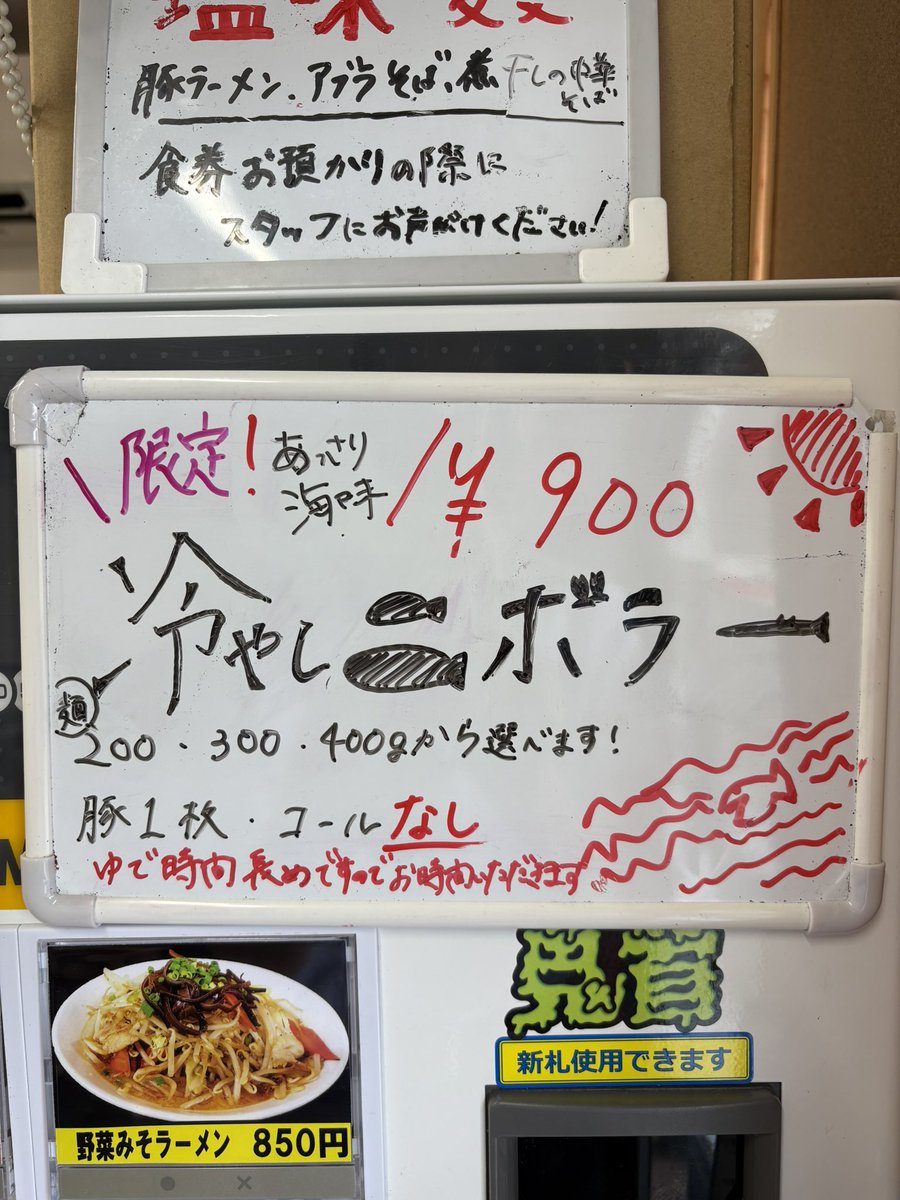 塩味
豚ラーメン、アブラそば、煮干しの中華そば
食券お預かりの際に
スタッフにお声がけください!
限定! あっさり海味 ¥900
冷やしニボラー
麺 200・300・400gから選べます!
豚1枚・コールなし
ゆで時間長めですのでお時間いただきます
新札使用できます
野菜みそラーメン 850円